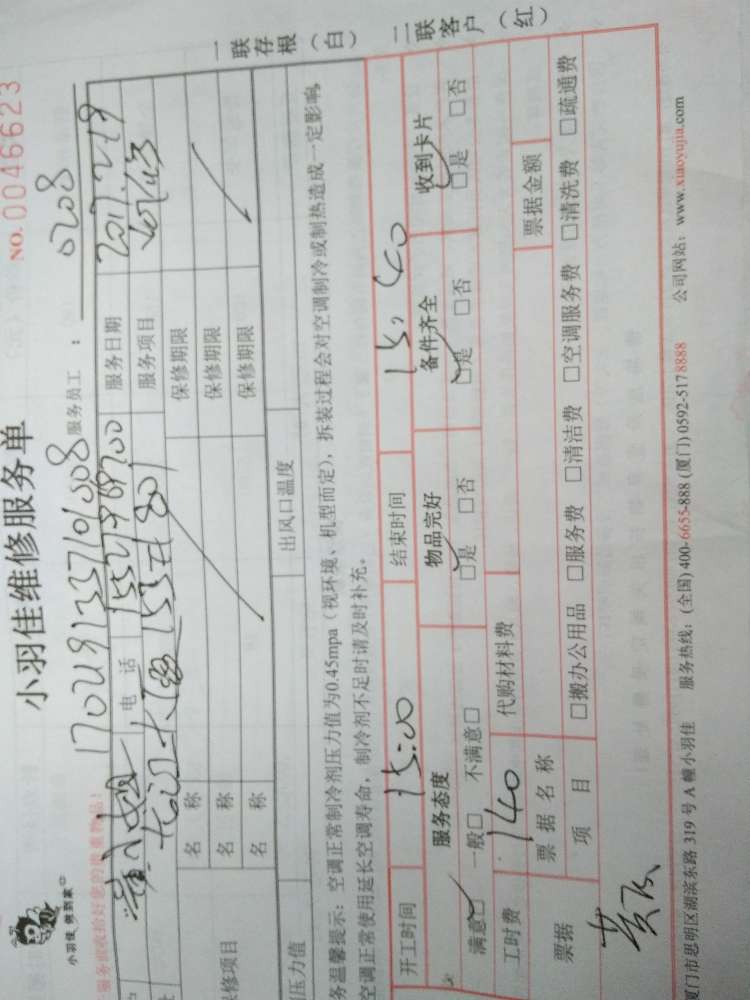 小羽佳维修服务单
NO. 0046623
小羽佳 做到家
服务员工： 0208
电 话
服务日期 2017.2.19
服务项目
名 称
保修期限
名 称
保修期限
名 称
保修期限
修项目
压力值
出风口温度
务温馨提示：空调正常制冷剂压力值为0.45mpa（视环境、机型而定），拆装过程会对空调制冷或制热造成一定影响，
空调正常使用延长空调寿命，制冷剂不足时请及时补充。
开工时间 15:00 结束时间 15:40
服务态度 物品完好 备件齐全 收到卡片
满意□ 一般□ 不满意□ □是 □否 □是 □否 □是 □否
工时费 140 代购材料费
票据 票据名称 票据金额
项 目 □搬办公用品 □服务费 □清洁费 □空调服务费 □清洗费 □疏通费
厦门市思明区湖滨东路 319 号 A 幢小羽佳 服务热线：(全国) 400-6655-888 (厦门) 0592-5178888 公司网站：www.xiaoyujia.com
一联存根（白） 二联客户（红）